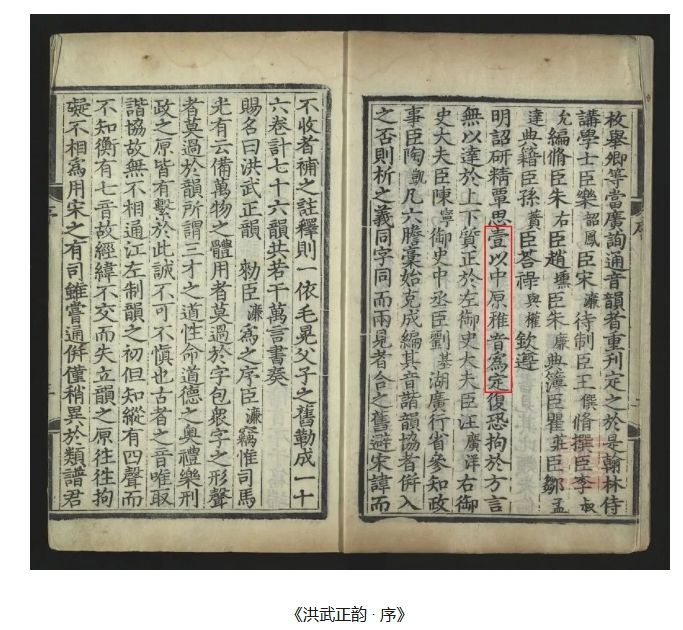 枚舉卿等當廣詢通音韻者重刊定之於是翰林侍
講學士臣樂韶鳳臣宋濂待制臣王僎脩撰臣李叔
允編脩臣朱右臣趙壎臣朱廉典簿臣瞿莊臣鄒孟
達典籍臣孫蕡臣荅祿與權欽遵
明詔研精覃思壹以中原雅音為定復恐拘於方言
無以達於上下質正於左御史大夫臣汪廣洋右御
史大夫臣陳寧御史中丞臣劉基湖廣行省參知政
事臣陶凱凡六謄藁始克成編其音諧韻協者併入
之否則析之義同字同而兩見者合之舊避宋諱而
不收者補之註釋則一依毛晃父子之舊勒成一十
六卷計七十六韻共若干萬言書奏
賜名曰洪武正韻 勑臣濂為之序臣濂竊惟司馬
光有云備萬物之體用者莫過於字包衆字之形聲
者莫過於韻所謂三才之道性命道德之奧禮樂刑
政之原皆有繫於此誠不可不慎也古者之音唯取
諧協故無不相通江左制韻之初但知縱有四聲而
不知衡有七音故經緯不交而失立韻之原往往拘
礙不相為用宋之有司雖嘗通併僅稍異於類譜君
《洪武正韵 · 序》